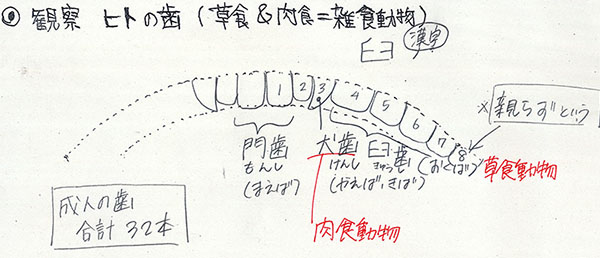 ◎ 観察 ヒトの歯 (草食&肉食=雑食動物)
臼 漢字
1 2 3 4 5 6 7 8
※親らずという
門歯 犬歯 臼歯
もんし けんし きゅうし
(まえば) (やえば,きば) (おくば)
草食動物
成人の歯
合計 32本
肉食動物